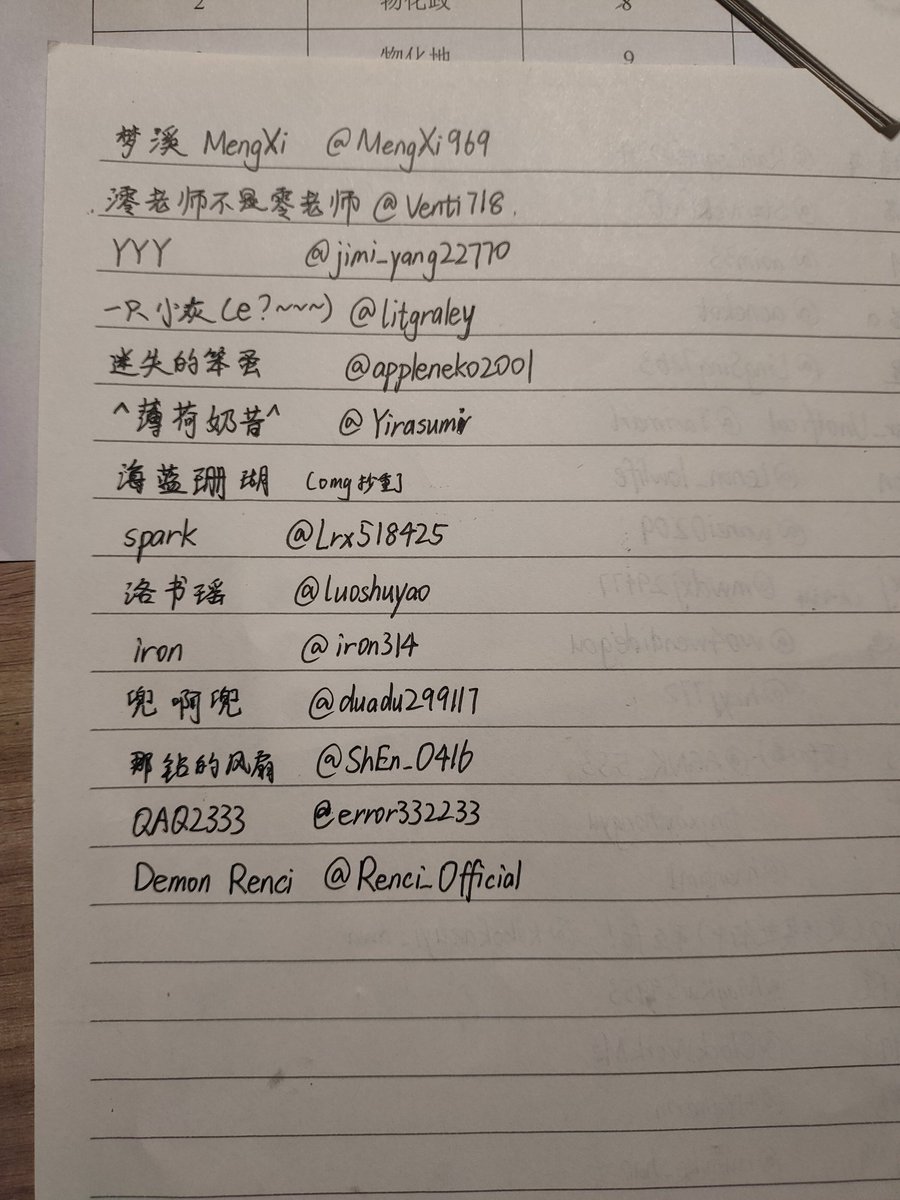 2 物化政 8
物化地 9
梦溪 MengXi @MengXi969
澪老师不是零老师 @Venti718
YYY @jimi_yang22770
一只小灰(e?~~~) @litgraley
迷失的笨蛋 @appleneko2001
^薄荷奶昔^ @Yirasumir
海蓝珊瑚 [omg抄重]
spark @Lrx518425
洛书瑶 @luoshuyao
iron @iron314
兜啊兜 @duadu299117
那钻的风扇 @ShEn_0416
QAQ2333 @error332233
Demon Renci @Renci_Official